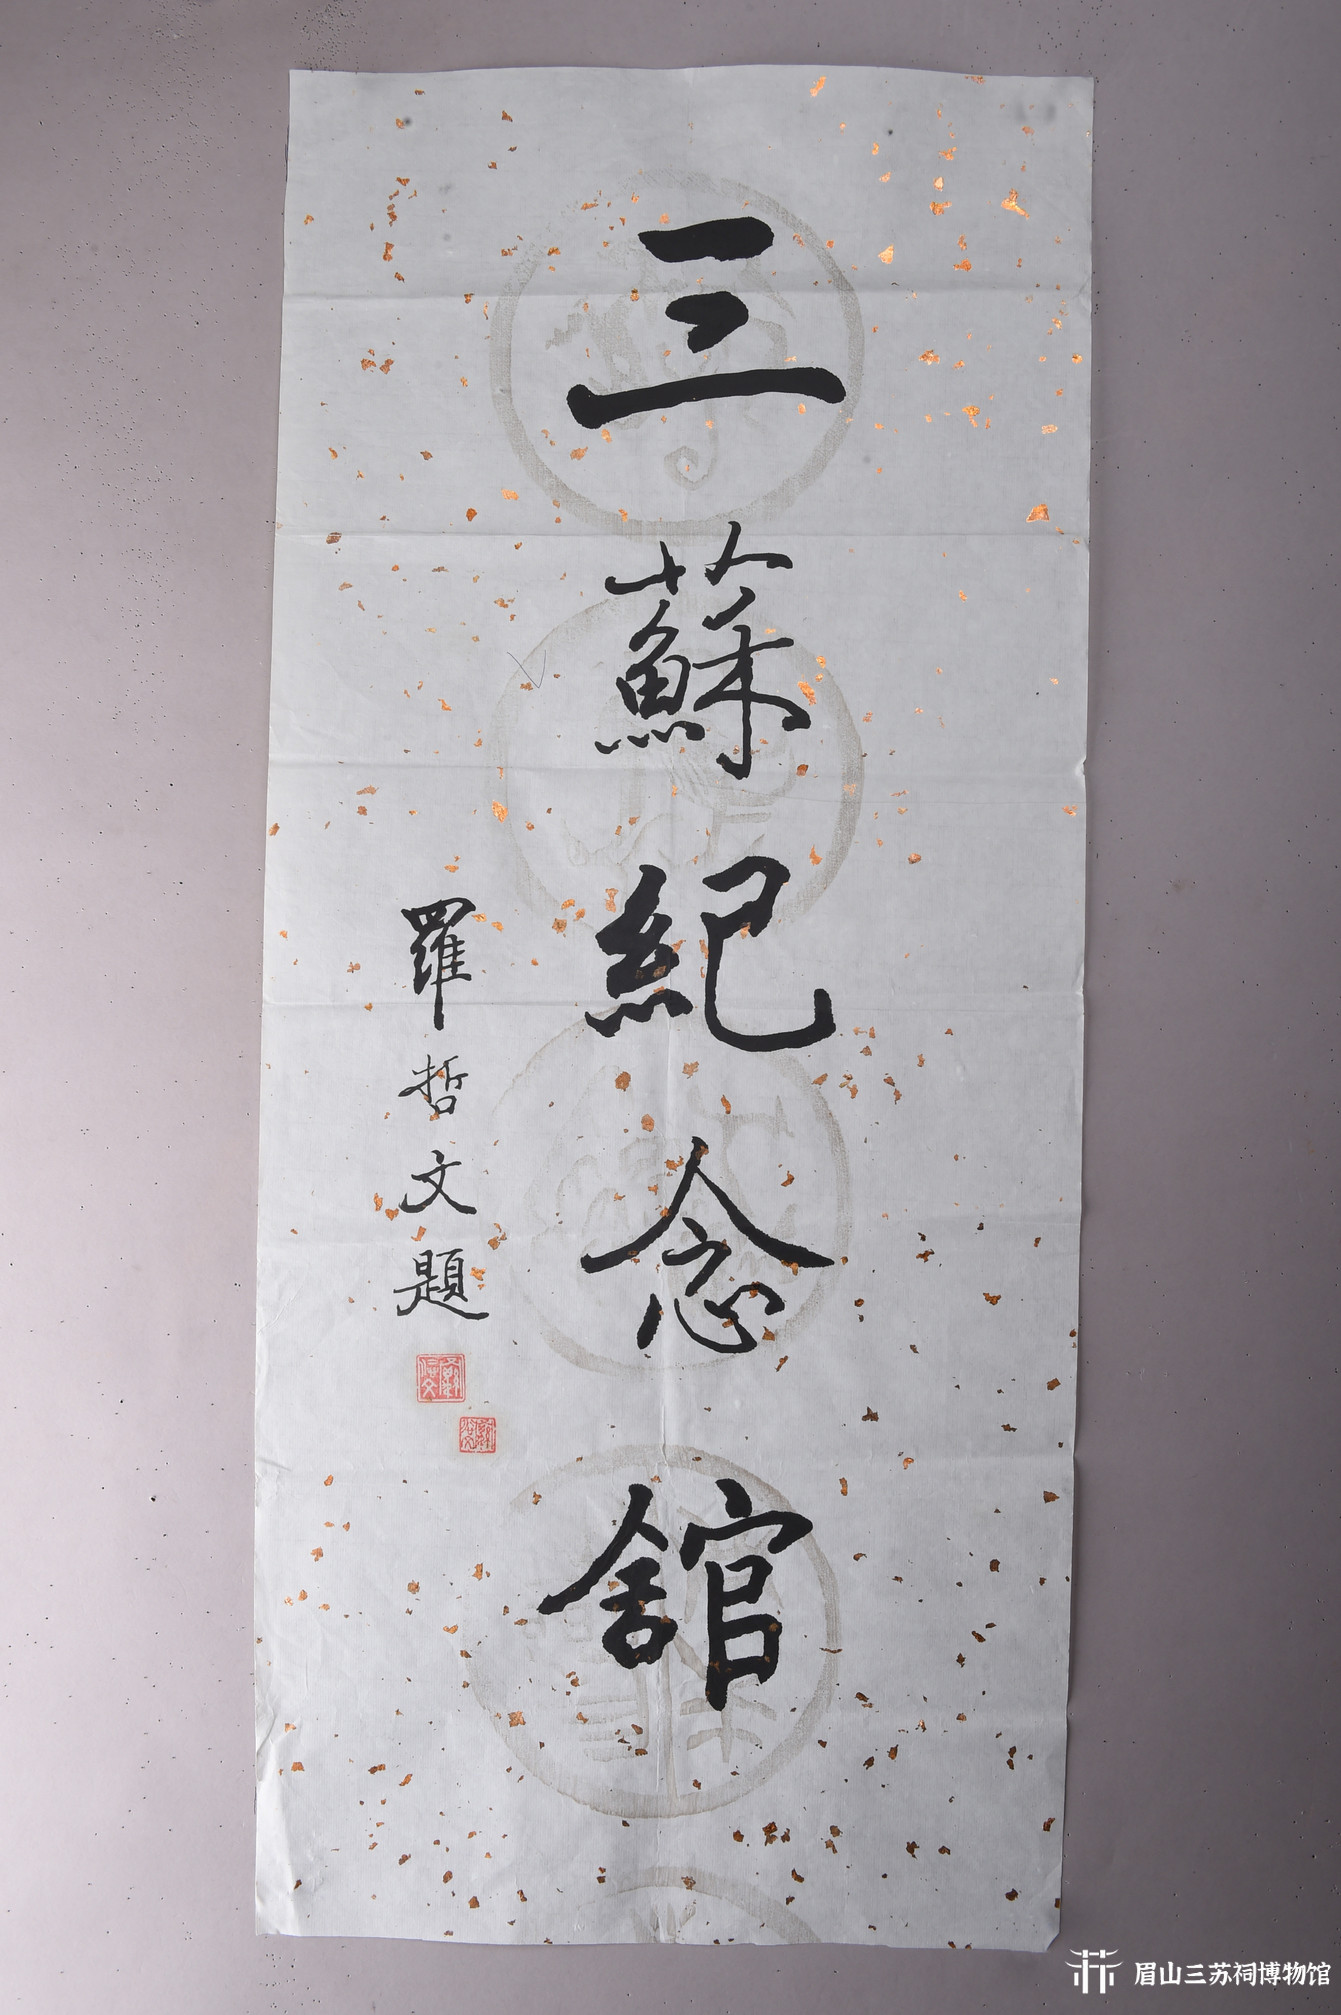 三蘇紀念舘
羅哲文題
眉山三苏祠博物馆